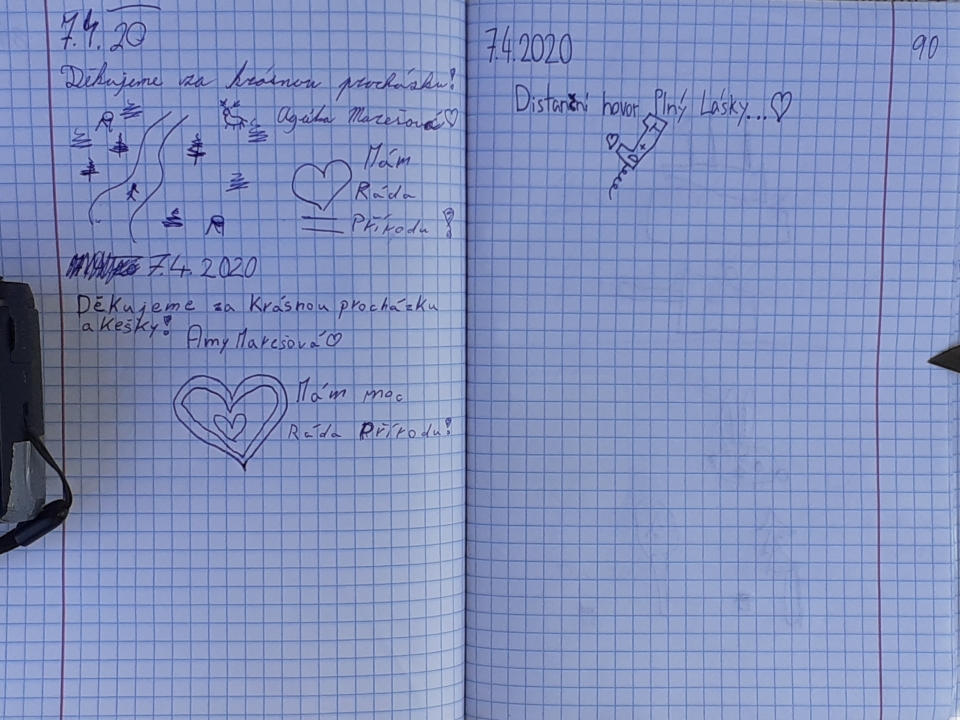 7.4. 20
Děkujeme za krásnou procházku!
Agáta Marešová
Mám
Ráda
Přírodu!
7.4. 2020
Děkujeme za Krásnou procházku
a Kešky!
Amy Marešová
Mám moc
Ráda Přírodu!
7.4.2020
90
Distanční hovor Plný Lásky...